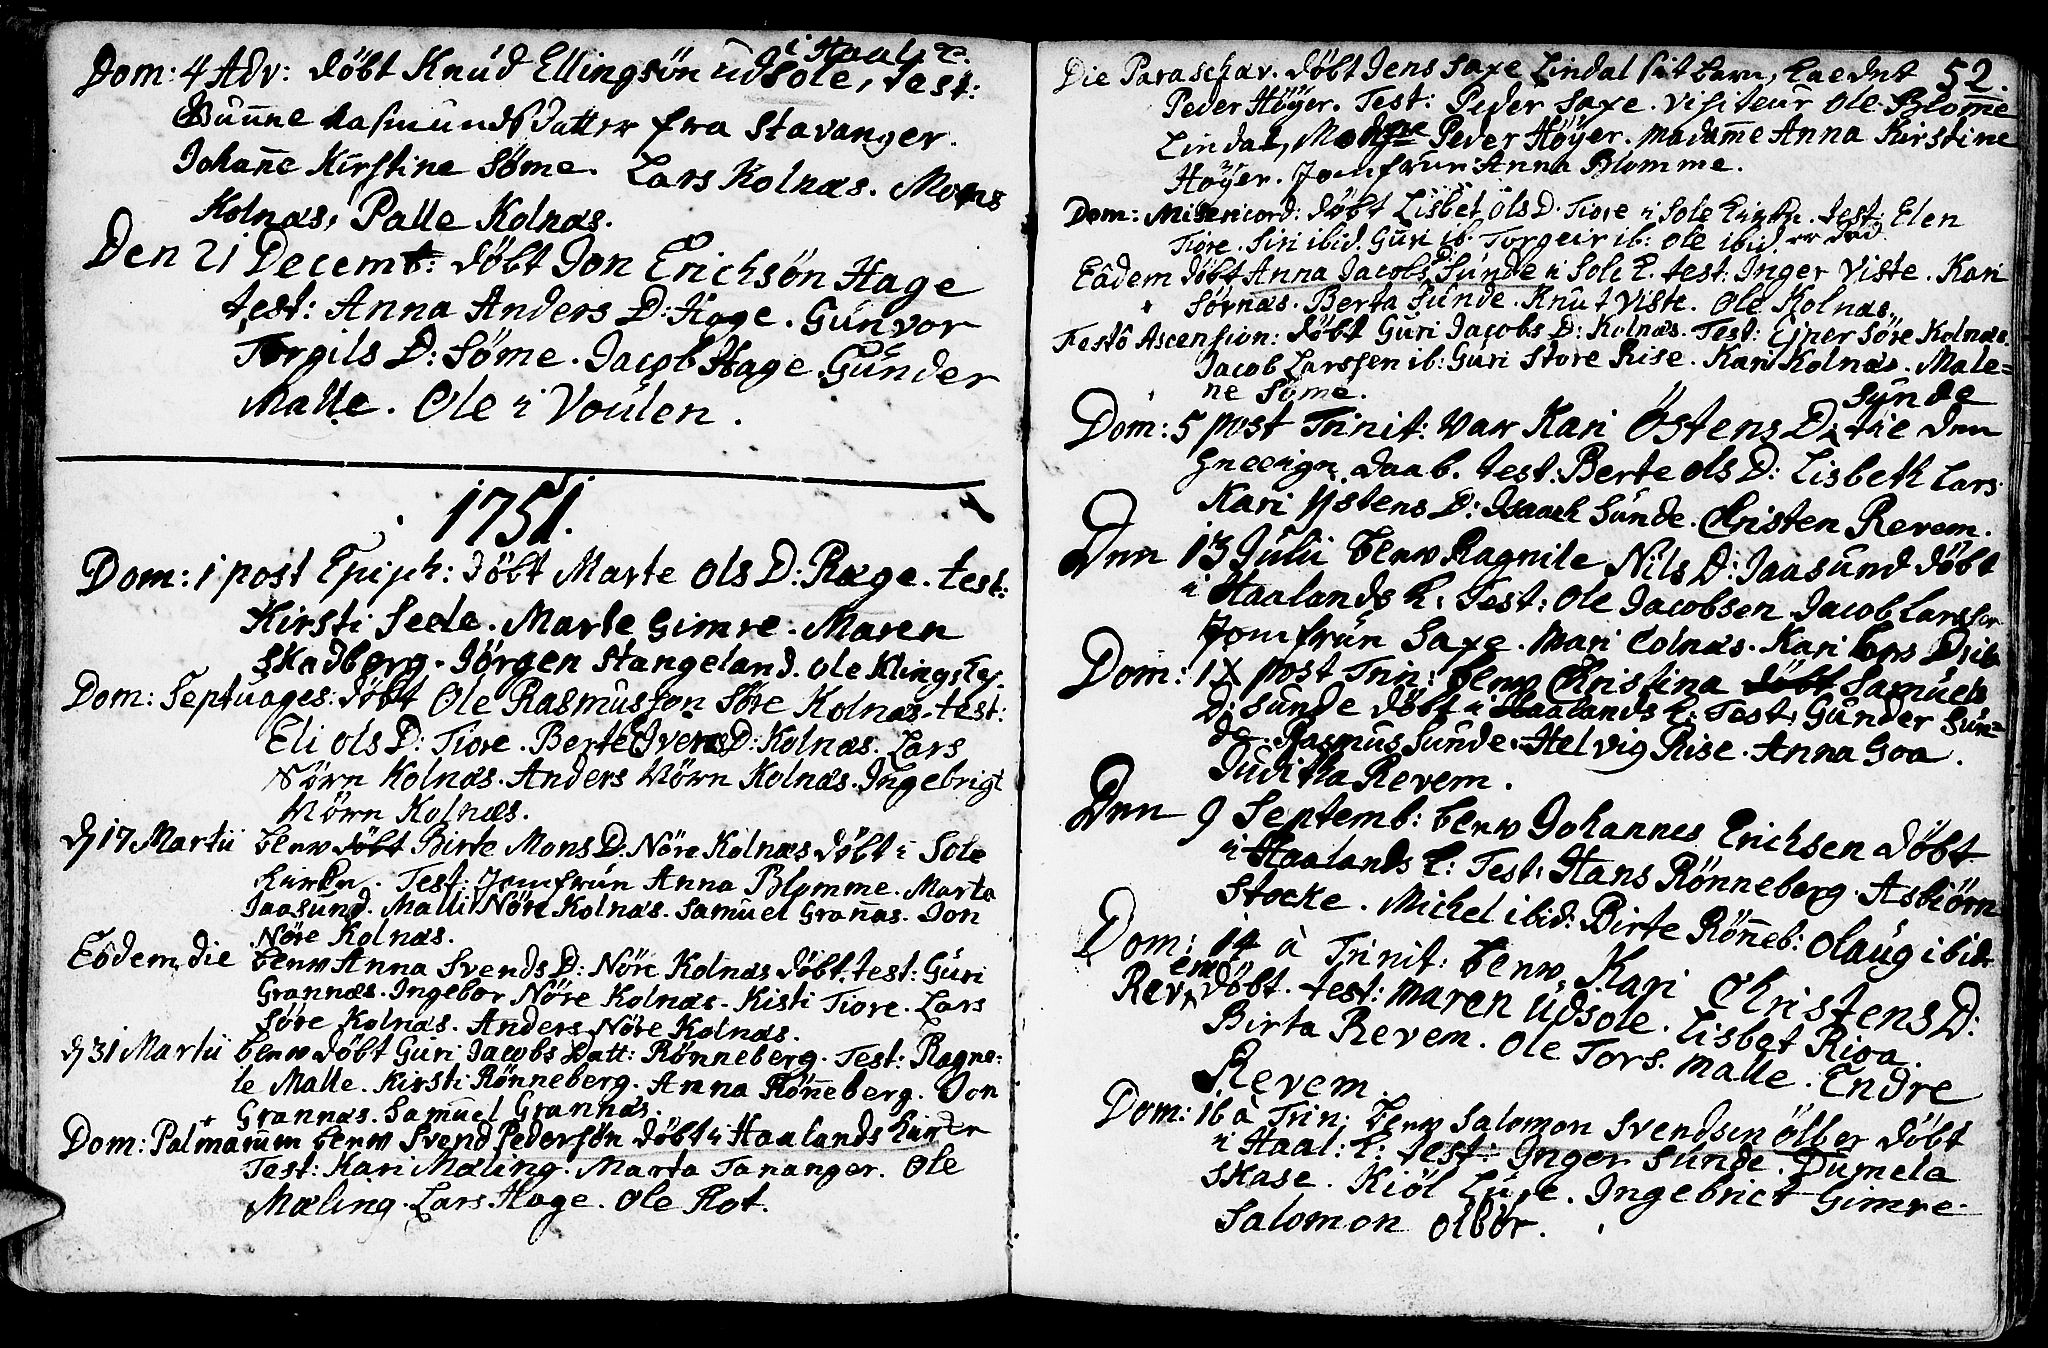 i Haal: k.
Dom: 4 Adv: døbt Knud Ellingsön udsole, test:
Gunne Rasmunds datter fra Stavanger.
Johanne Kirstine Söme. Lars Kolnæs. Mons
Kolnæs, Palle Kolnæs.
Den 21 Decemb: döbt Jon Erichsön Hage
test: Anna Anders D: Hage. Gunvor
Torgils D: Söme. Jacob Hage Gunder
Malle. Ole i Voulen.
1751.
Dom: 1 post Epiph: döbt Marte Ols D: Ræge. test:
Kirsti Seele. Marte Gimre. Maren
Skadberg. Jörgen Stangeland. Ole Klingsey.
Dom: Septuages: döbt Ole Rasmusson Söre Kolnæs. test:
Eli Ols D: Tiore. Berte Ivers D: Kolnæs. Lars
Nörn Kolnæs. Anders Nörn Kolnæs. Ingebrigt
Nörn Kolnæs.
d 17 Martii blew döbt Birte Mons D: Nöre Kolnæs döbt i Sole
kirke. Test: Jomfrün Anna Blomme. Marta
Jaasund. Malli Nöre Kolnæs. Samuel Grannæs. Jon
Nöre Kolnæs.
Eodem die blew Anna Svends D: Nöre Kolnæs döbt. test: Guri
Grannæs. Ingebor Nöre Kolnæs. Kisti Tiore. Lars
Söre Kolnæs. Anders Nöre Kolnæs.
d 31 Martii blew döbt Guri Jacobs Datt: Rönneberg. Test: Ragne:
le Malle. Kirsti Rönneberg. Anna Rönneberg. Jon
Grannæs. Samuel Grannæs.
Dom: Palmarum blew Svend Pedersön döbt i Haalands Kirke
Test: Kari Mæling. Marta Tananger. Ole
Mæling. Lars Hage. Ole Rot.
52.
Die Paraschæv. döbt Jens Saxe Lindal sit barn, kaldet
Peder Höÿer. Test: Peder Saxe. visiteur Ole Blome
Lindal, Peder Höÿer. Madame Anna Kirstine
Höÿer. Jomfrün Anna Blomme.
Dom: Misericord: döbt Lisbet Ols D. Tiore i Sole kirke. test: Elen
Tiore. Siri ibid. Guri ib: Torgeir ib: Ole ibid. er död
Eâdem döbt Anna Jacobs Sunde i Sole k. test: Inger Viste. Kari
Sörnæs. Berta Sunde. Knut Viste. Ole Kolnæs.
Festô Ascension: döbt Guri Jacobs D: Kolnæs. Test: Ejner Söre Kolnæs.
Jacob Larssen ib: Guri Store Rise. Kari Kolnæs. Male=
ne Söme.
Synde
Dom: 5 post Trinit: var Kari Östens D: tie den
daab. test: Berte Ols D: Lisbeth Lars
Kari Ystens D: Isaach Sunde. Christen Revem.
Den 13 Julii blew Ragnile Nils D: Jaasund döbt
i Haalands k: Test: Ole Jacobsen Jacob Larssen
Jomfrün Saxe. Mari Colnæs. Kari Lars D ib:
Dom: IX post Trin: blew Christina döbt Samuels
D: Sunde döbt i Haalands k: Test: Gunder Sun=
de. Rasmus Sunde. Helvig Rise. Anna Goa.
Juditha Revem.
Den 9 Septemb: blew Johannes Erichsen döbt
i Haalands k: Test: Hans Rönneberg. Asbiörn
Stocke. Michel ibid: Birte Rönneb: Olaug ibid:
Dom: 14 à Trinit: blew Kari Christens D:
Revem döbt. test: Maren Udsole. Lisbet Risa.
Birta Revem. Ole Tors. Malle. Endre
Revem.
Dom: 16 à Trin: blew Salomon Svendsen ölbor döbt
i Haal: k: test: Inger Sunde. Dumela
Skase. Kiöl Lure. Ingebrict Gimre.
Salomon Olbör.